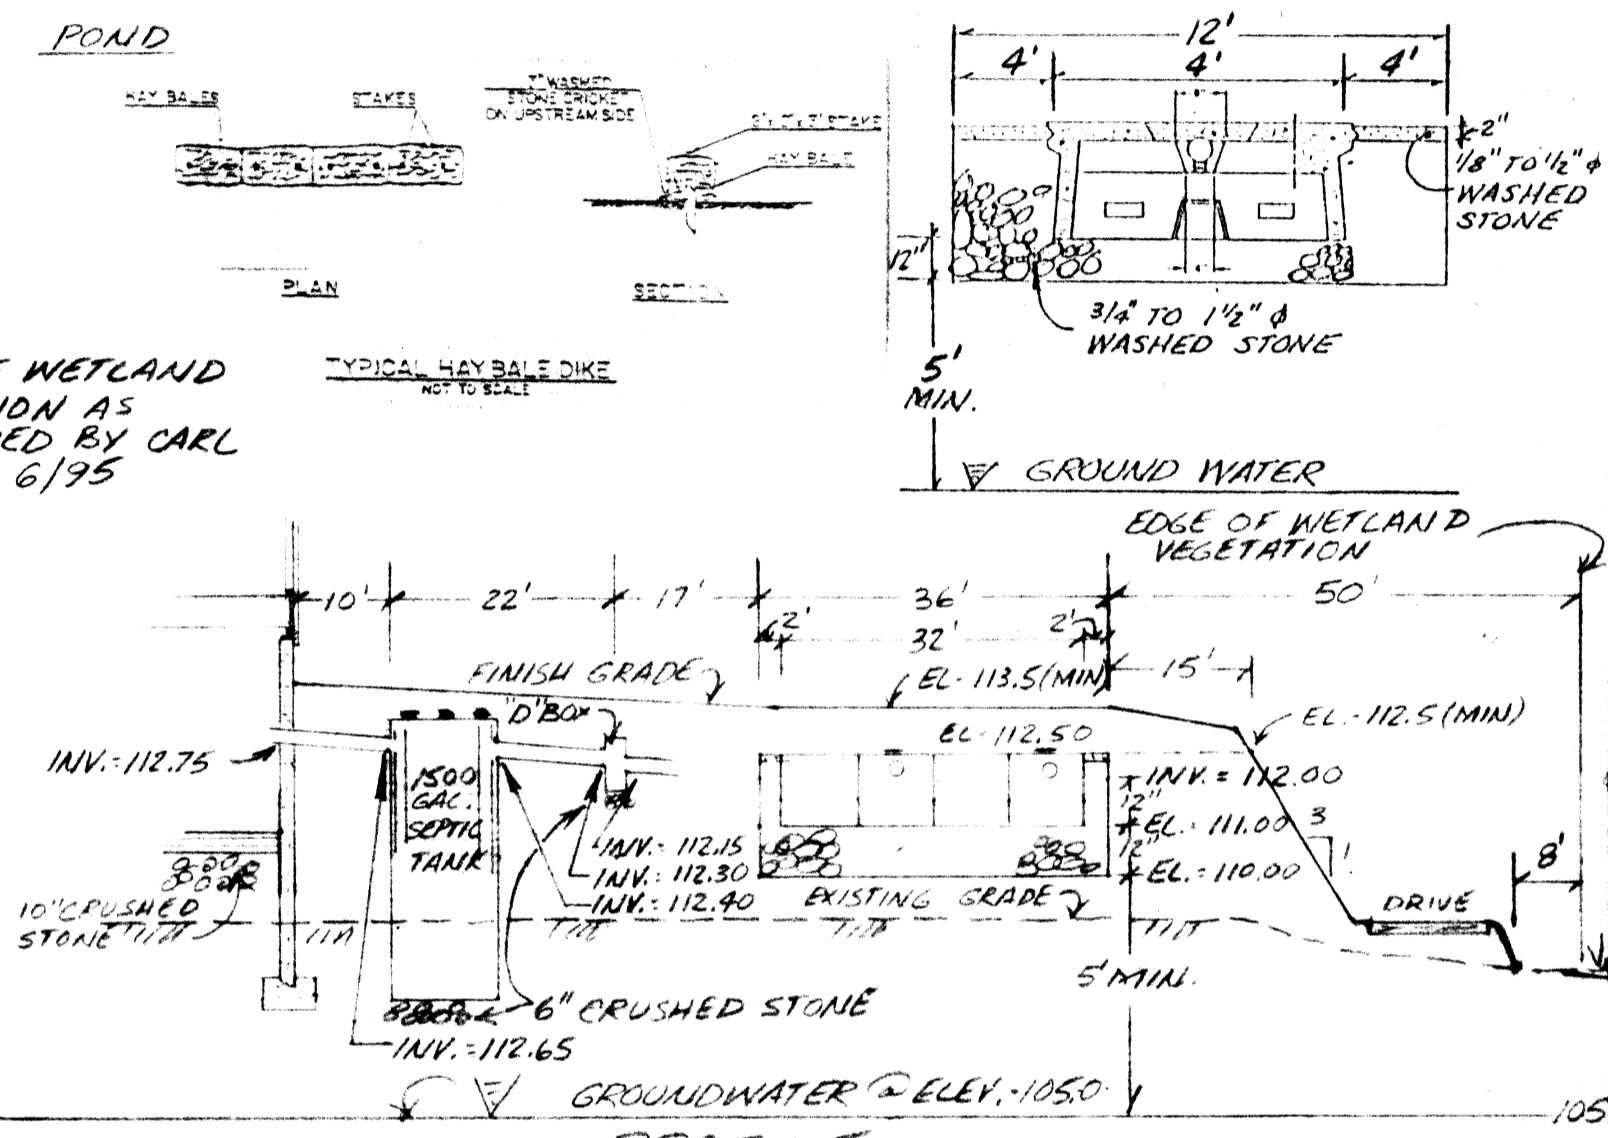 POND
HAY BALES
STAKES
WASHED
STONE CRICKET
ON UPSTREAM SIDE
STAKE
HAY BALE
PLAN
SECTION
TYPICAL HAY BALE DIKE
NOT TO SCALE
WETLAND
AS
BY CARL
6/95
12'
4'
4'
4'
2"
1/8" TO 1/2" ϕ
WASHED
STONE
12"
3/4" TO 1 1/2" ϕ
WASHED STONE
5'
MIN.
GROUND WATER
EDGE OF WETLAND
VEGETATION
10'
22'
17'
36'
50'
2'
32'
2'
15'
FINISH GRADE
EL-113.5(MIN)
"D" BOX
EL-112.50
EL.-112.5(MIN)
INV.=112.75
1500
GAL.
SEPTIC
TANK
INV.=112.00
12"
EL.=111.00
12"
EL.=110.00
3
1
INV.=112.15
INV.=112.30
INV.=112.40
EXISTING GRADE
8'
DRIVE
10" CRUSHED
STONE
5' MIN.
6" CRUSHED STONE
INV.=112.65
GROUNDWATER @ ELEV.-105.0
105